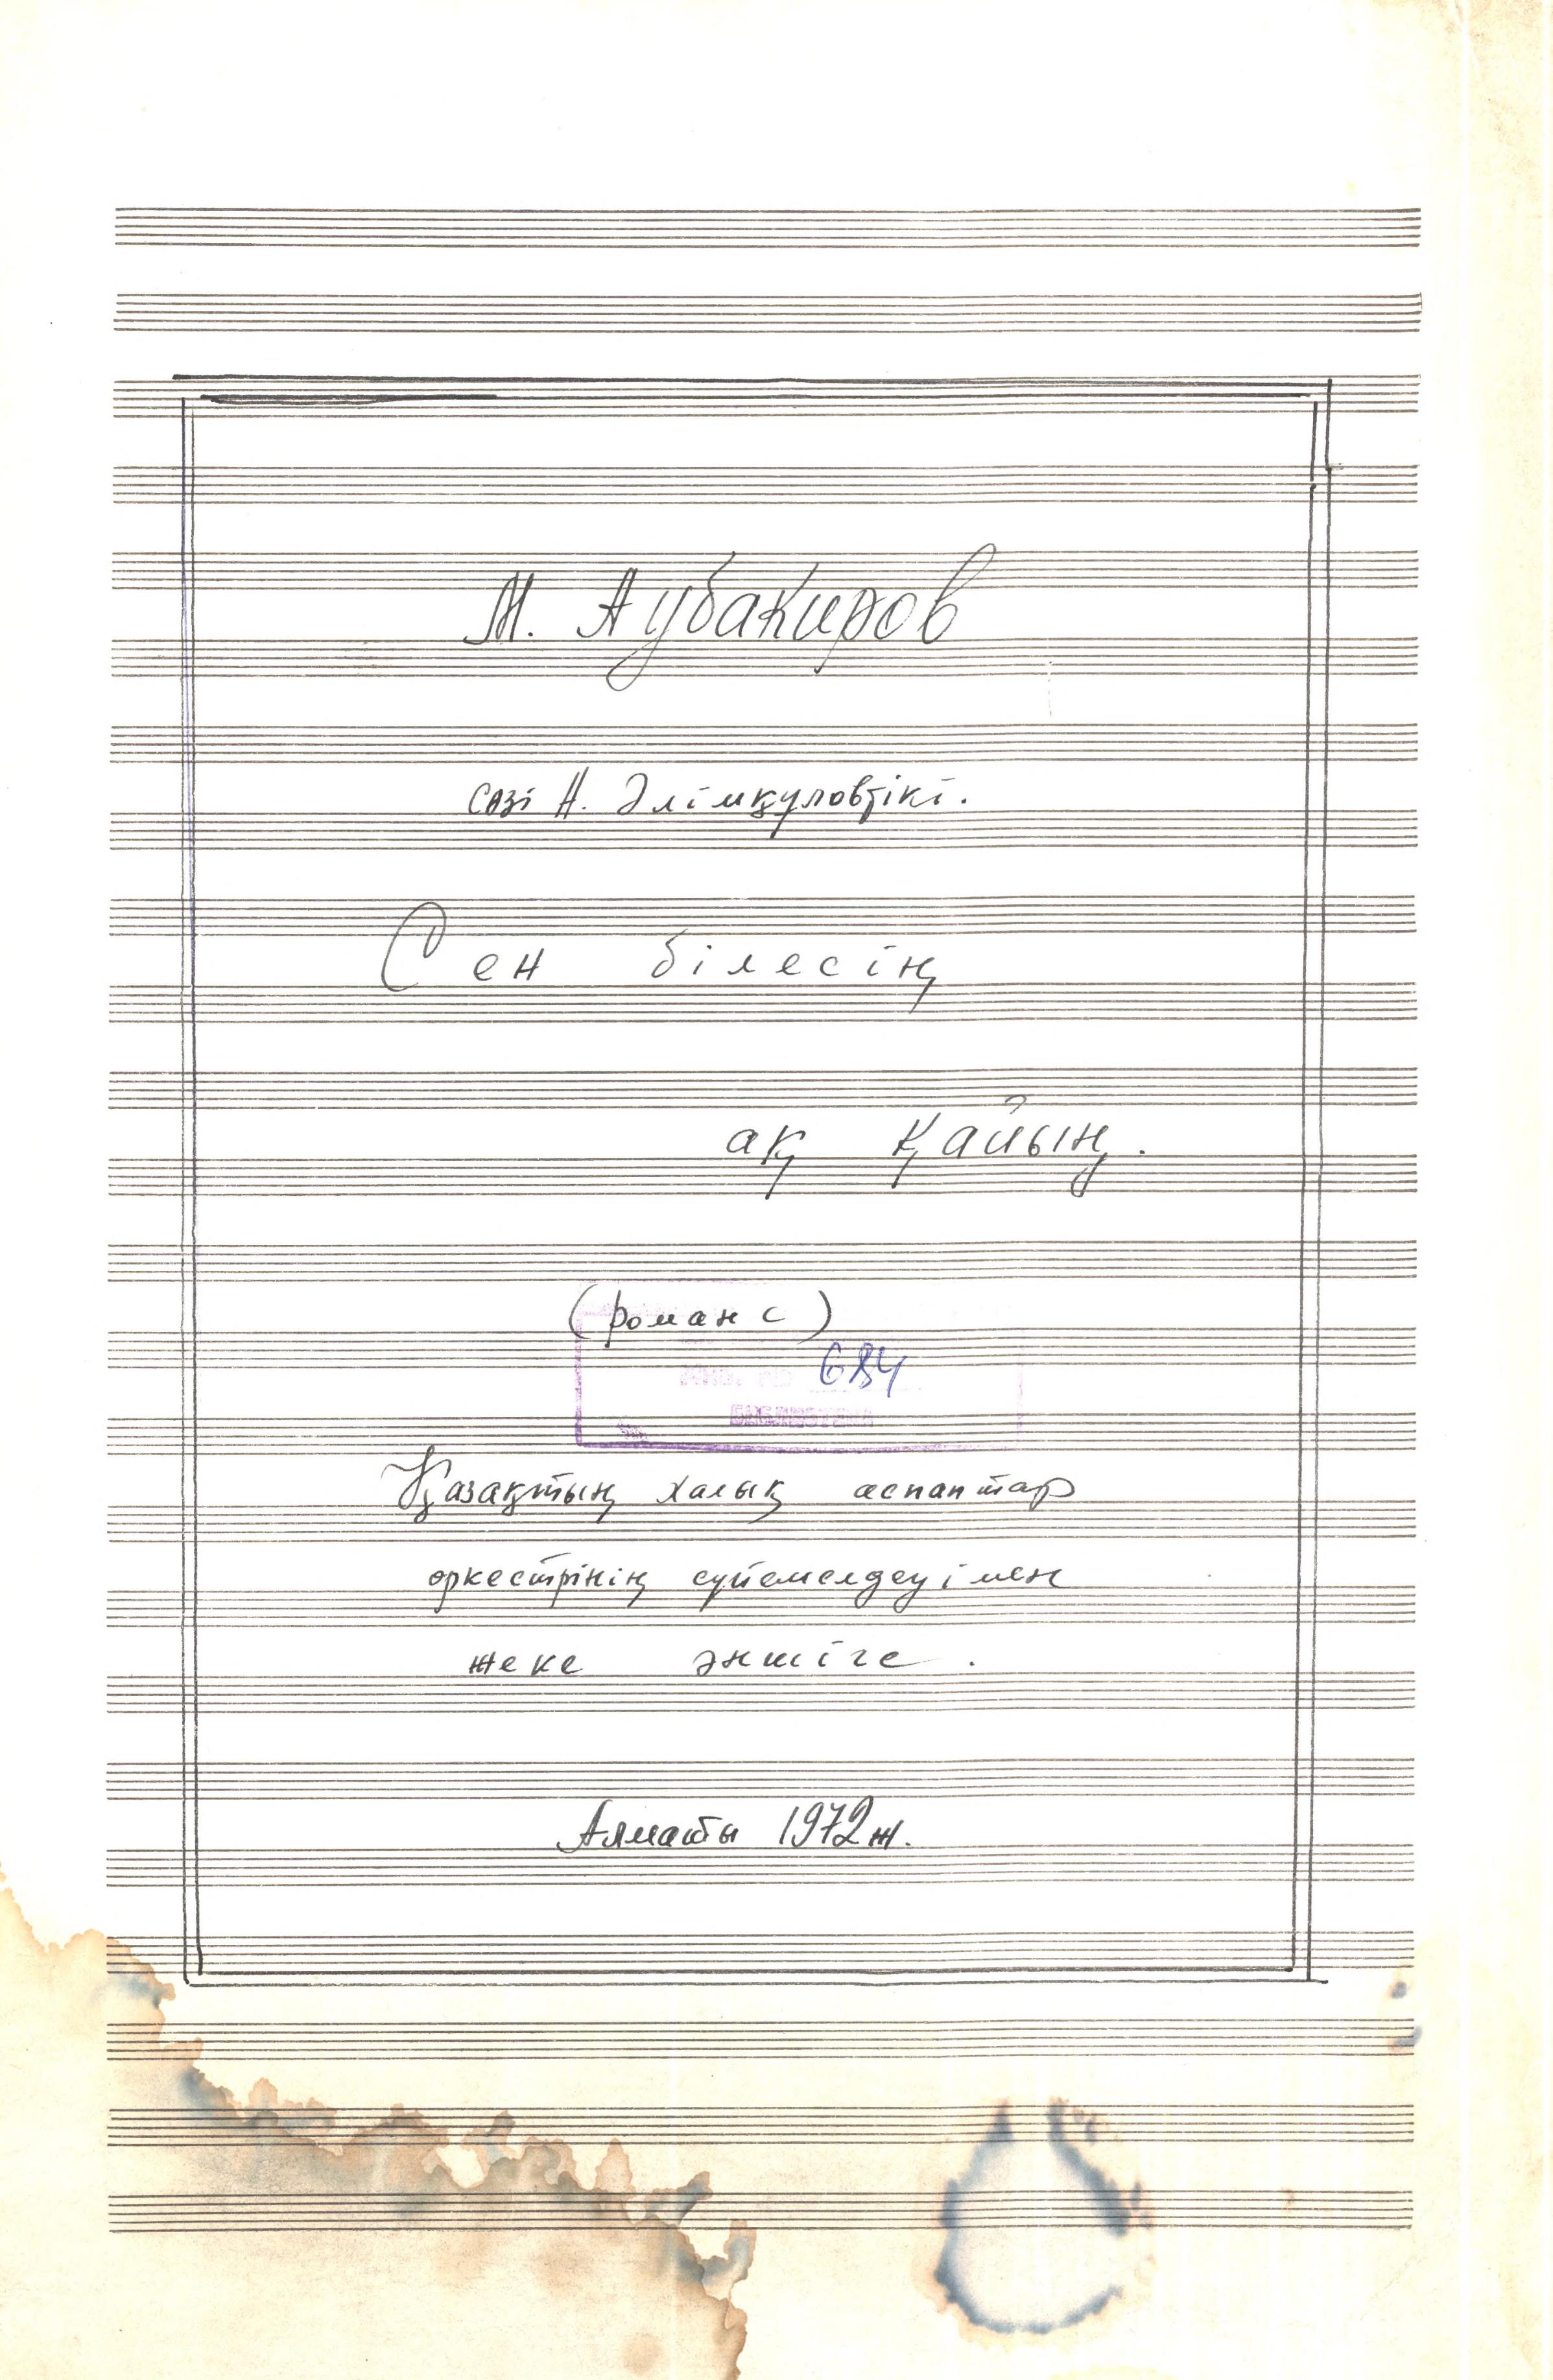 М. Аубакиров
сөзі Н. Әлімқұловтікі.
Сен білесің
ақ қайың.
(романс)
ИНВ. № 684
БИБЛИОТЕКА
Қазақтың халық аспаптар
оркестрінің сүйемелдеуімен
жеке әншіге.
Алматы 1972 ж.